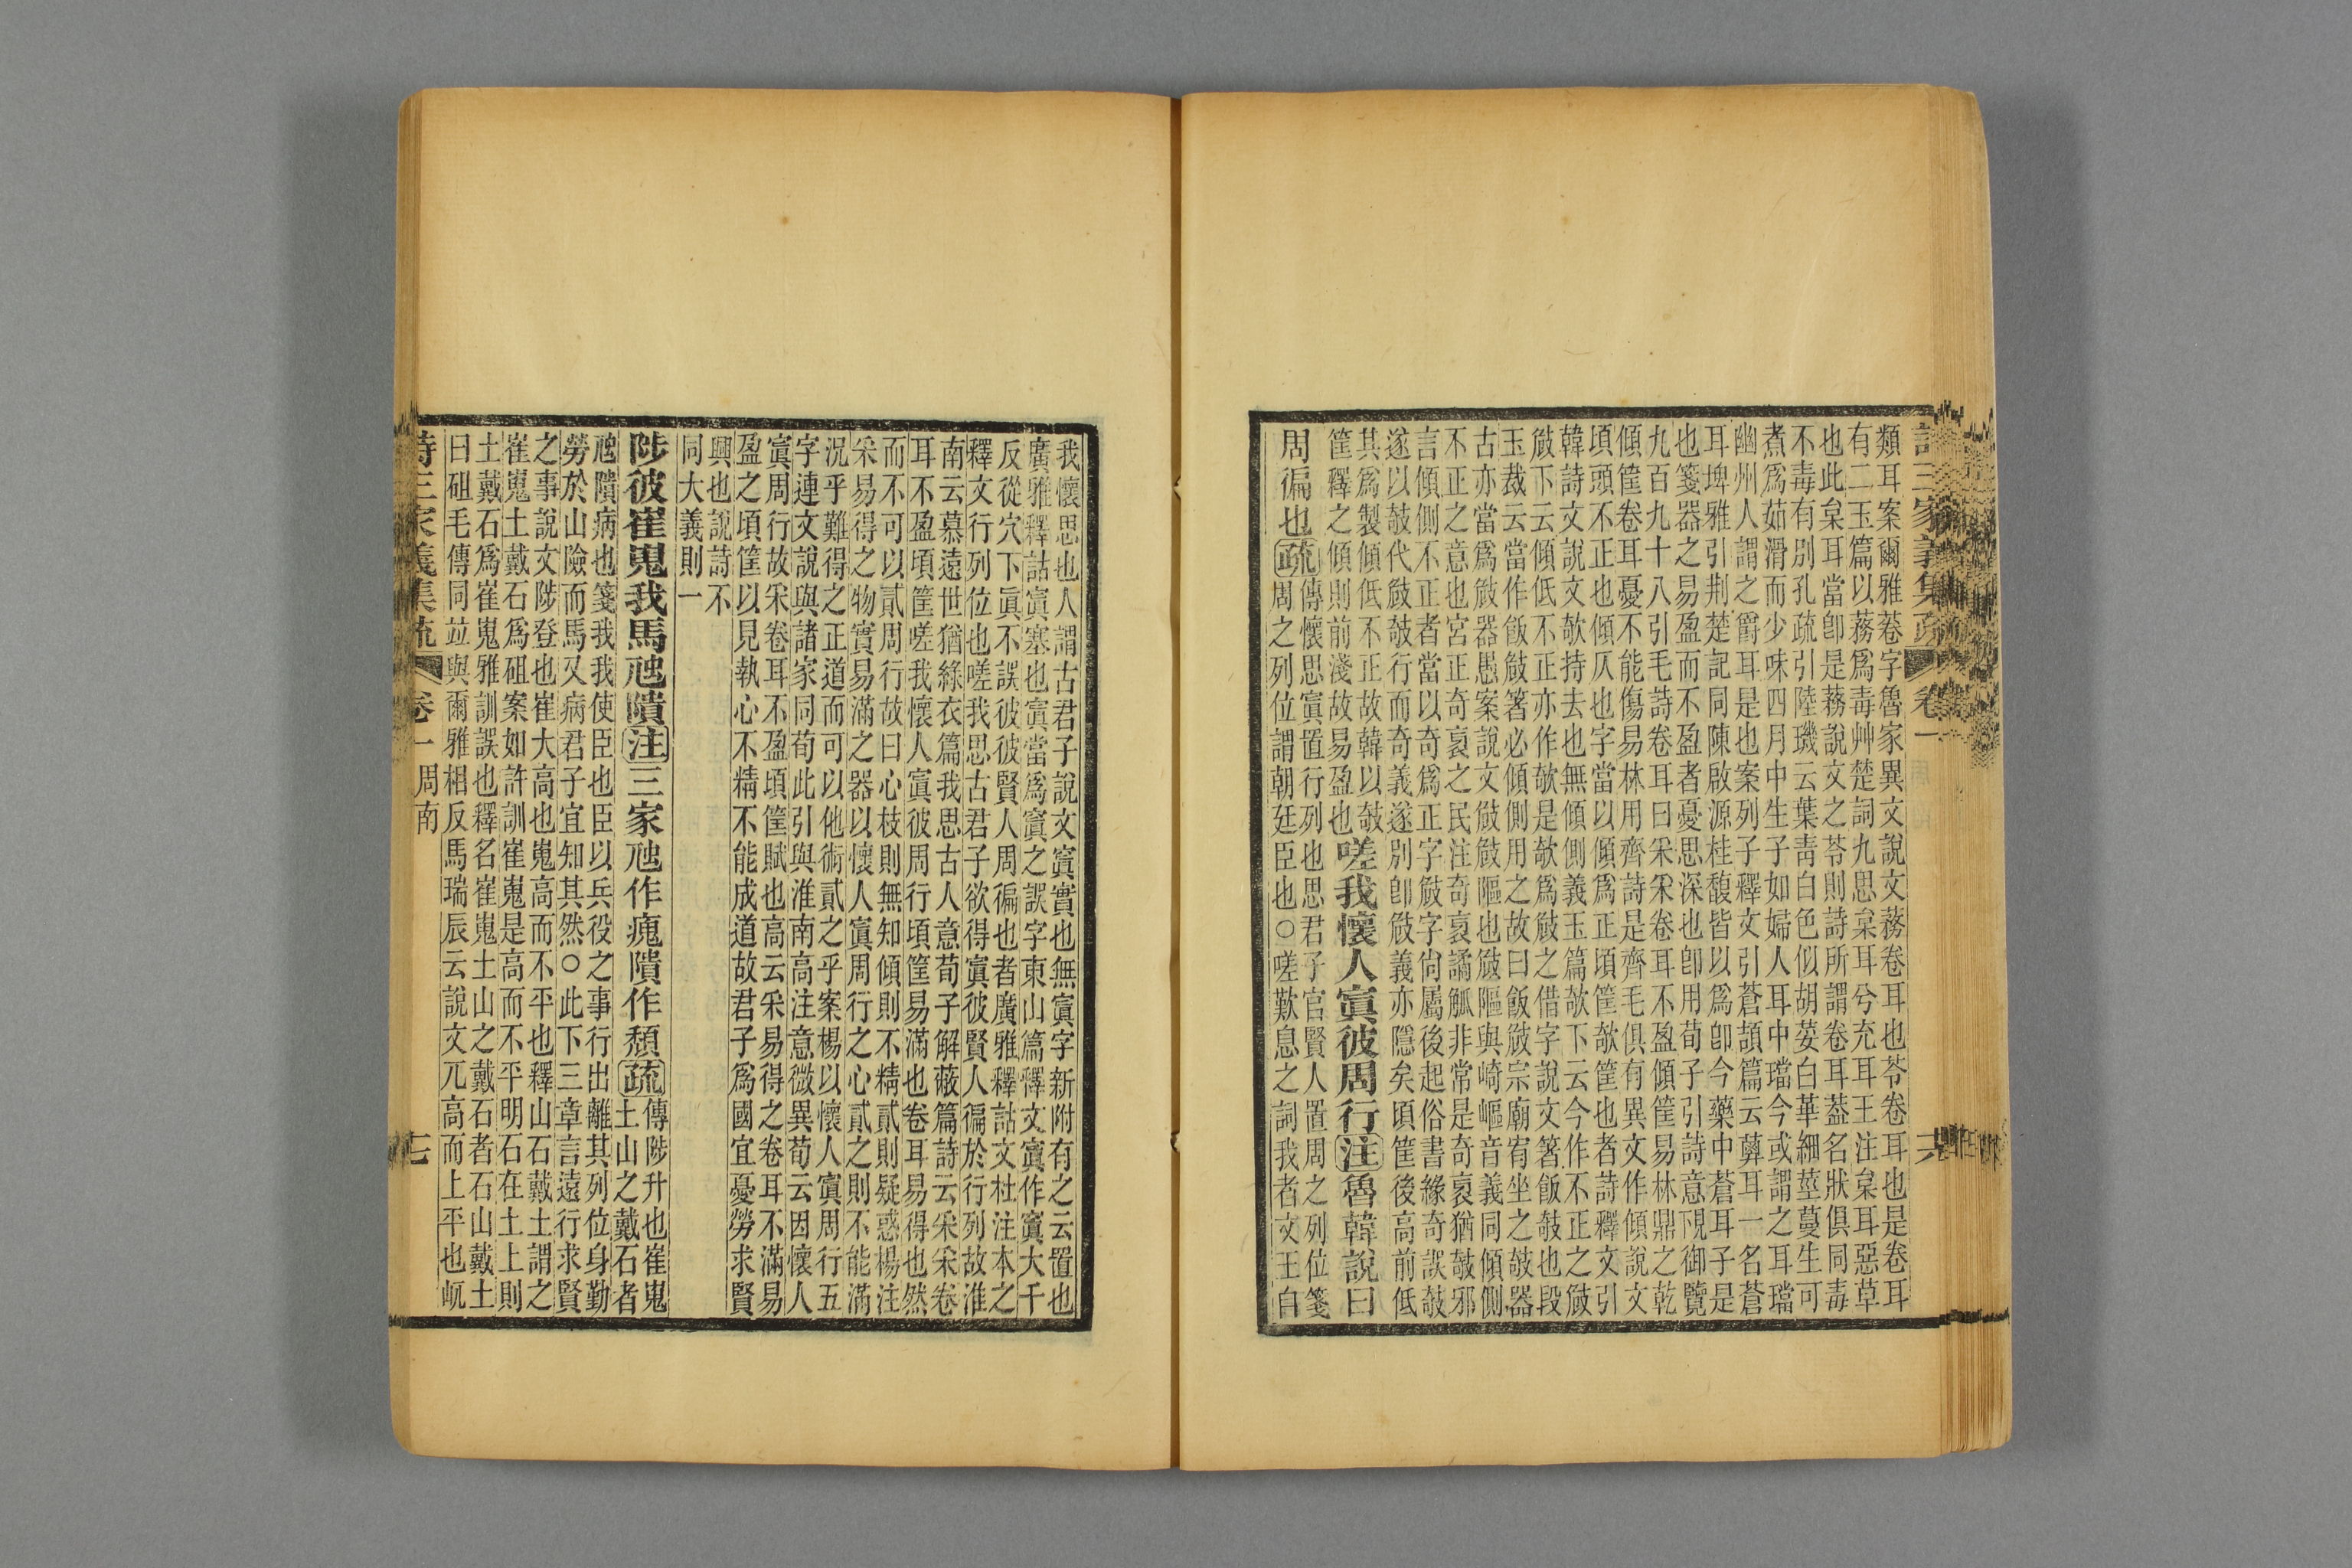 詩三家義集疏 卷一 六
類耳案爾雅菤字魯家異文說文蓩卷耳也苓卷耳也是卷耳
有二玉篇以蓩爲毒艸楚詞九思枲耳兮充耳王注枲耳惡草
也此枲耳當卽是蓩說文之苓則詩所謂卷耳葢名狀俱同毒
不毒有別孔疏引陸璣云葉靑白色似胡荽白華細莖蔓生可
煮爲茹滑而少味四月中生子如婦人耳中璫今或謂之耳璫
幽州人謂之爵耳是也案列子釋文引蒼頡篇云葈耳一名蒼
耳埤雅引荆楚記同陳啟源桂馥皆以爲卽今藥中蒼耳子是
也箋器之易盈而不盈者憂思深也卽用荀子引詩意覑御覽
九百九十八引毛詩卷耳曰采采卷耳不盈傾筐易林鼎之乾
傾筐卷耳憂不能傷易林用齊詩是齊毛俱有異文作傾說文
頃頭不正也傾仄也字當以傾爲正頃筐攲筐也者詩釋文引
韓詩文說文攲持去也無傾側義玉篇攲下云今作不正之攱
攱下云傾低不正亦作攲是攲爲攱之借字說文箸飯攲也段
玉裁云當作飯攱箸必傾側用之故曰飯攱宗廟宥坐之攲器
古亦當爲攱器愚案說文攱攱䧢也攱䧢與崎嶇音義同傾側
不正之意也宮正奇衺之民注奇衺譎觚非常是奇衺猶攲邪
言傾側不正者當以奇爲正字攱字尙屬後起俗書緣奇誤攲
遂以攲代攱攲行而奇義遂別卽攱義亦隱矣頃筐後高前低
其爲製傾低不正故韓以攲
筐釋之傾則前淺故易盈也嗟我懷人寘彼周行注魯韓說曰
周徧也疏傳懷思寘置行列也思君子官賢人置周之列位箋
周之列位謂朝廷臣也○嗟歎息之詞我者文王自
我懷思也人謂古君子說文寘實也無寘字新附有之云置也
廣雅釋詁寘塞也寘當爲窴之誤字東山篇釋文窴作寘大千
反從穴下眞不誤彼彼賢人周徧也者廣雅釋詁文杜注本之
釋文行列位也嗟我思古君子欲得寘彼賢人徧於行列故淮
南云慕遠世猶綠衣篇我思古人意荀子解蔽篇詩云采采卷
耳不盈頃筐嗟我懷人寘彼周行頃筐易滿也卷耳易得也然
而不可以貳周行故曰心枝則無知傾則不精貳則疑惑楊注
采易得之物實易滿之器以懷人寘周行之心貳之則不能滿
況乎難得之正道而可以他術貳之乎案楊以懷人寘周行五
字連文說與諸家同荀此引與淮南高注意微異荀云因懷人
寘周行故采卷耳不盈頃筐賦也高云采易得之卷耳不滿易
盈之頃筐以見執心不精不能成道故君子爲國宜憂勞求賢
興也說詩不
同大義則一
陟彼崔嵬我馬虺隤注三家虺作瘣隤作頽疏傳陟升也崔嵬
土山之戴石者
虺隤病也箋我我使臣也臣以兵役之事行出離其列位身勤
勞於山險而馬又病君子宜知其然○此下三章言遠行求賢
之事說文陟登也崔大高也嵬高而不平也釋山石戴土謂之
崔嵬土戴石爲砠案如許訓崔嵬是高而不平明石在土上則
土戴石爲崔嵬雅訓誤也釋名崔嵬土山之戴石者石山戴土
曰砠毛傳同竝與爾雅相反馬瑞辰云說文兀高而上平也屼
詩三家義集疏 卷一 周南 七